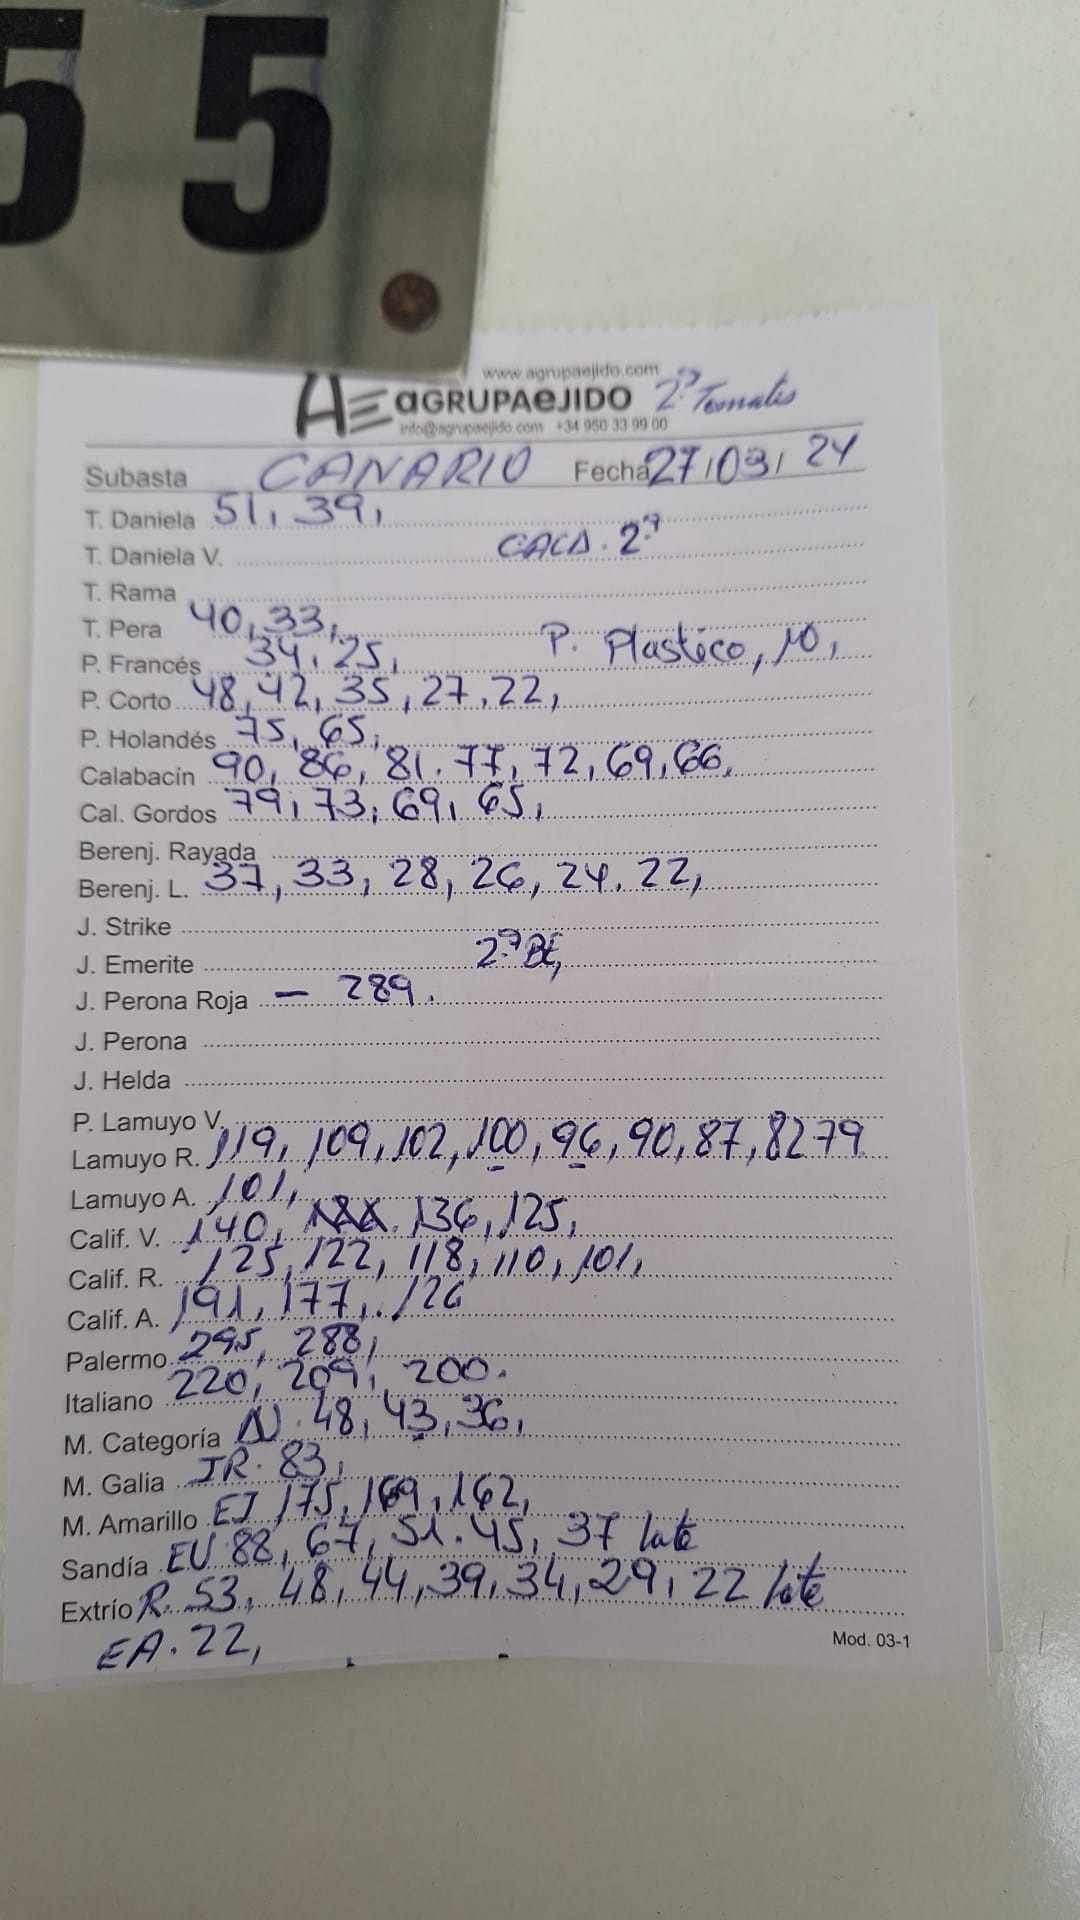 55
www.agrupaejido.com
AE aGRUPAeJIDO 2ª Tomates
info@agrupaejido.com +34 950 33 99 00
Subasta CANARIO Fecha 27/03/24
T. Daniela 51, 39,
T. Daniela V. CACD. 2ª
T. Rama
T. Pera 40, 33,
P. Francés 34, 25, P. Plastico, 10,
P. Corto 48, 42, 35, 27, 22,
P. Holandés 75, 65,
Calabacín 90, 86, 81. 77, 72, 69, 66,
Cal. Gordos 79, 73, 69, 65,
Berenj. Rayada
Berenj. L. 37, 33, 28, 26, 24. 22,
J. Strike
J. Emerite 2ª BE,
J. Perona Roja - 289.
J. Perona
J. Helda
P. Lamuyo V.
Lamuyo R. 119, 109, 102, 100, 96, 90, 87, 82 79
Lamuyo A. 101,
Calif. V. 140, 136, 125,
Calif. R. 125, 122, 118, 110, 101,
Calif. A. 191, 177, 126
Palermo 295, 288,
Italiano 220, 209, 200.
M. Categoría N. 48, 43, 36,
M. Galia IR. 83,
M. Amarillo EI 175, 169, 162,
Sandía EV 88, 67, 51. 45, 37 lote
Extrío R. 53, 48, 44, 39, 34, 29, 22 lote
EA. 22,
Mod. 03-1